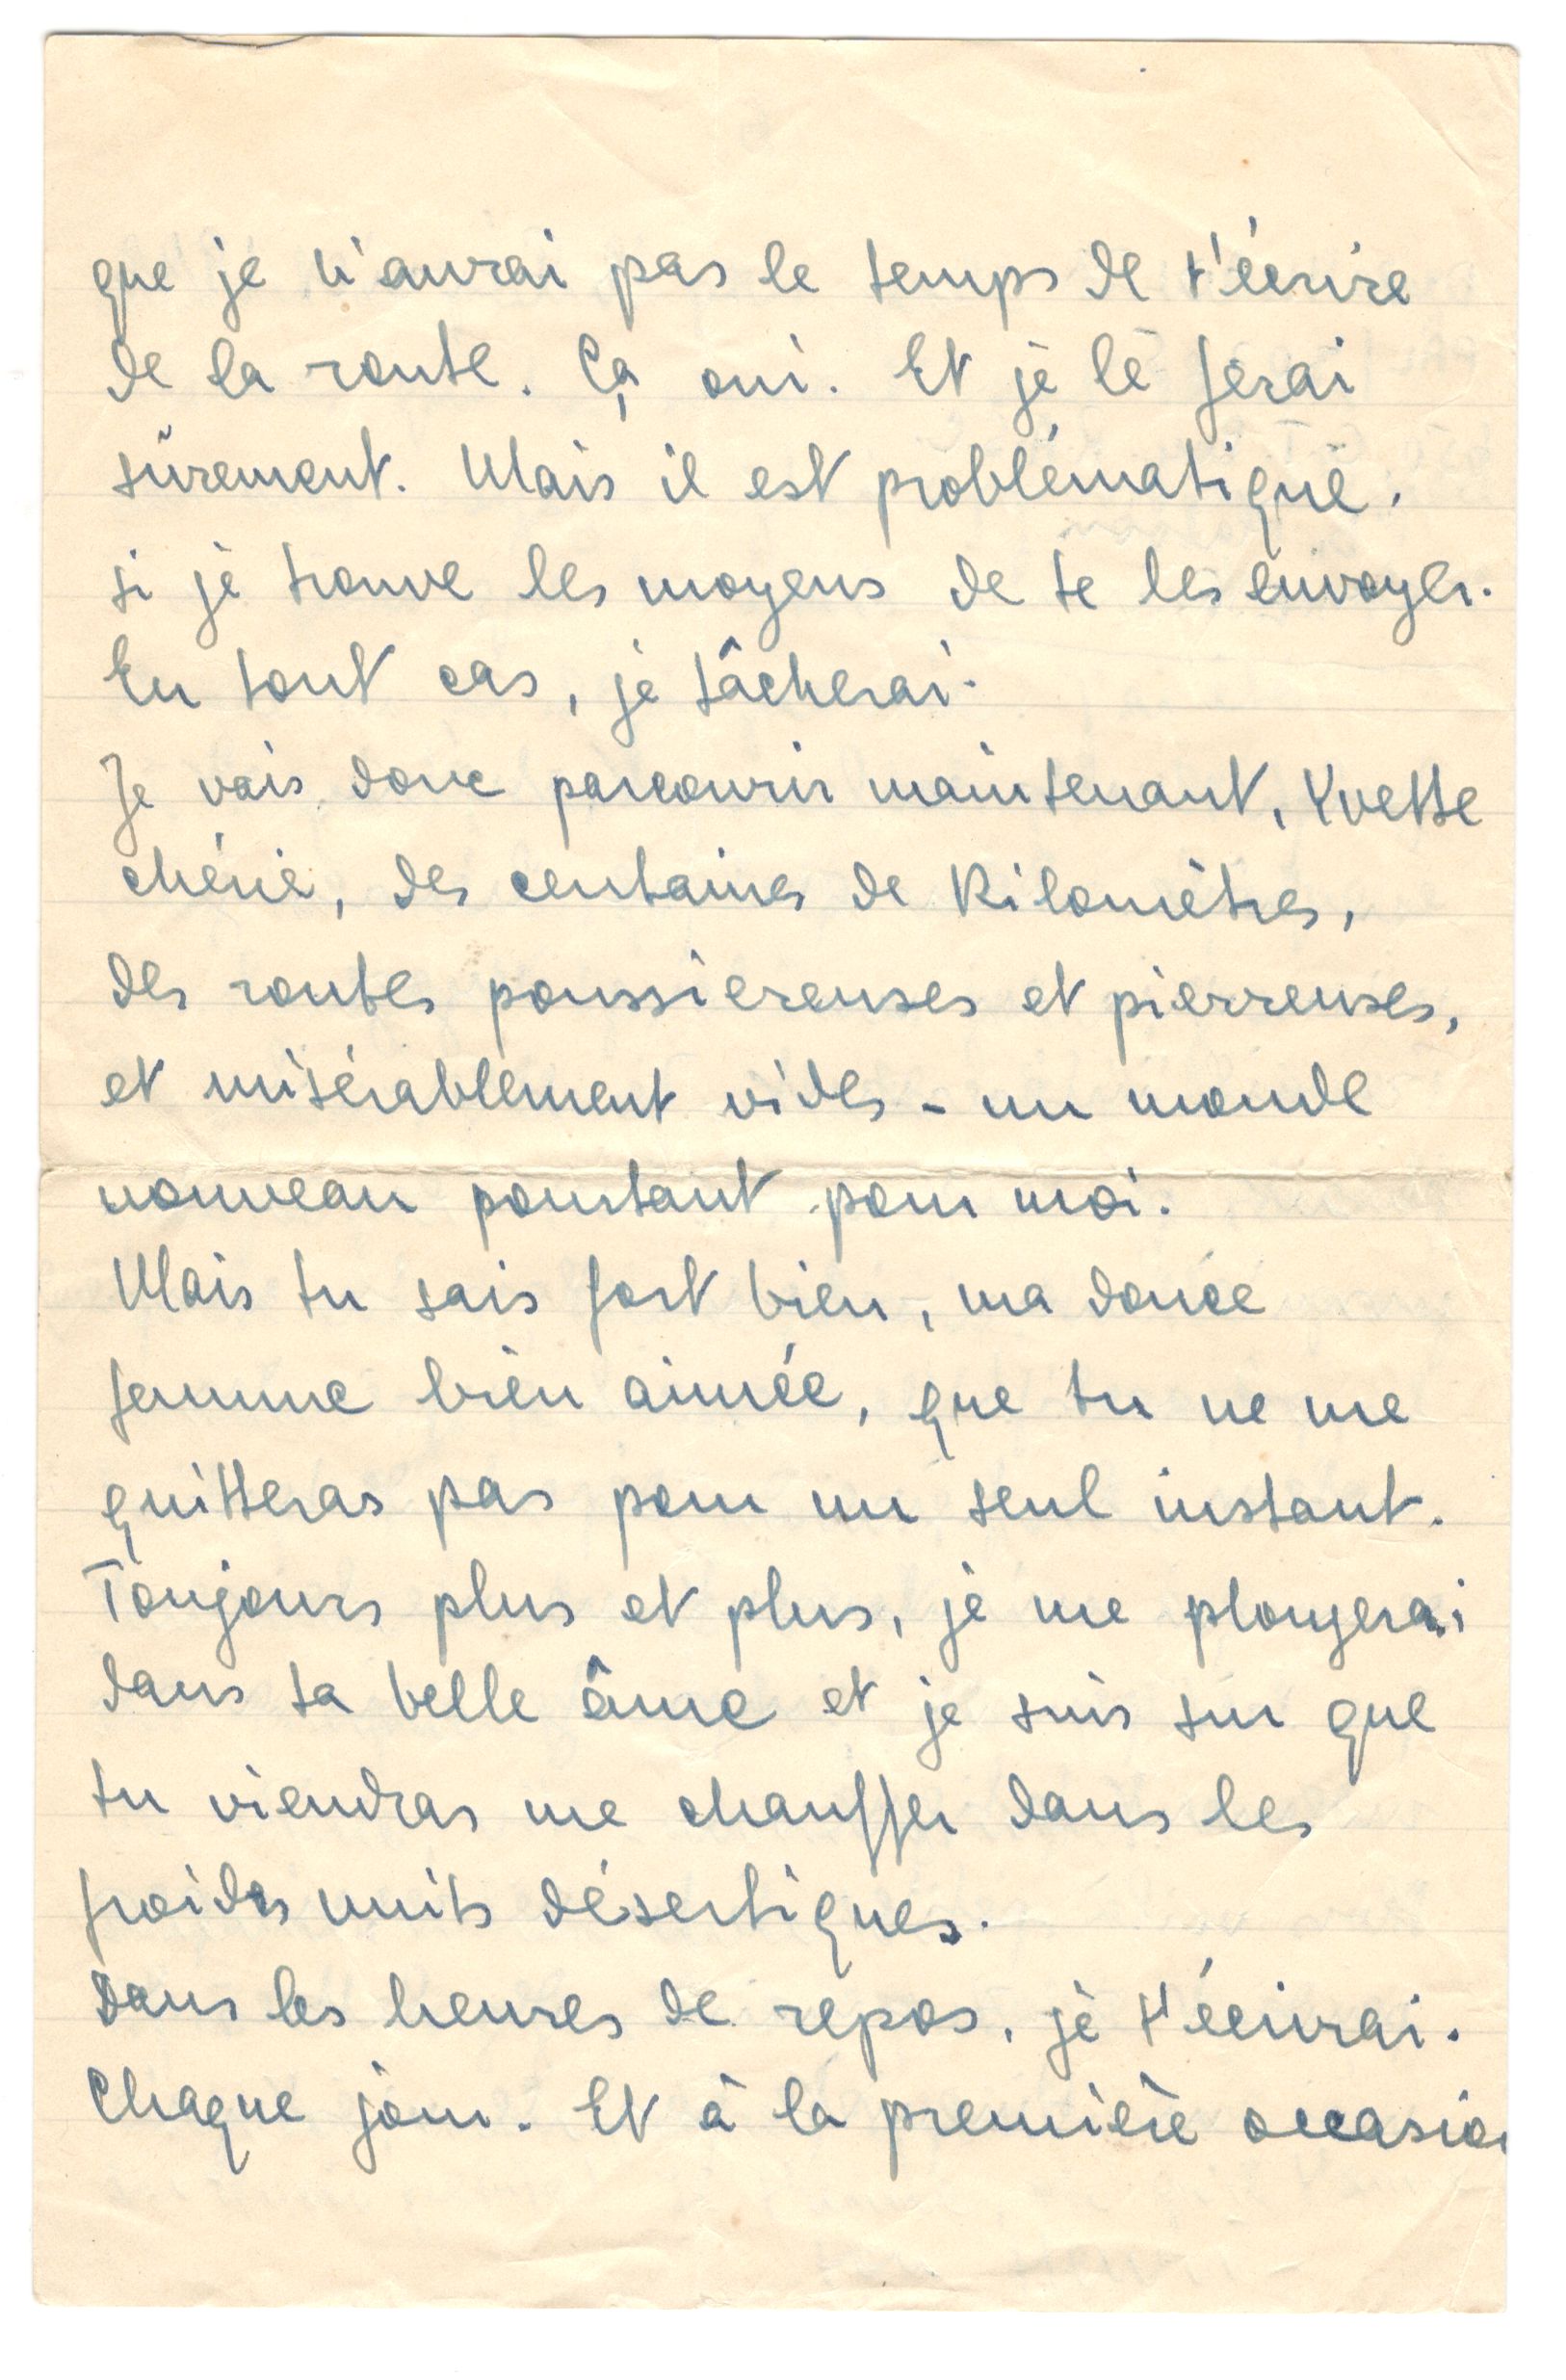 que je n'aurai pas le temps de t'écrire
de la route. Ça oui. Et je le ferai
sûrement. Mais il est problématique.
si je trouve les moyens de te les envoyer.
En tout cas, je tâcherai.
Je vais donc parcourir maintenant, Yvette
chérie, des centaines de Kilomètres,
des routes poussiereuses et pierreuses,
et misérablement vides - un monde
nouveau pourtant pour moi.
Mais tu sais fort bien, ma douce
femme bien aimée, que tu ne me
quitteras pas pour un seul instant.
Toujours plus et plus, je me plongerai
dans ta belle âme et je suis sur que
tu viendras me chauffer dans les
froides nuits désertiques.
Dans les heures de repos, je t'écrirai.
Chaque jour. Et à la première occasion